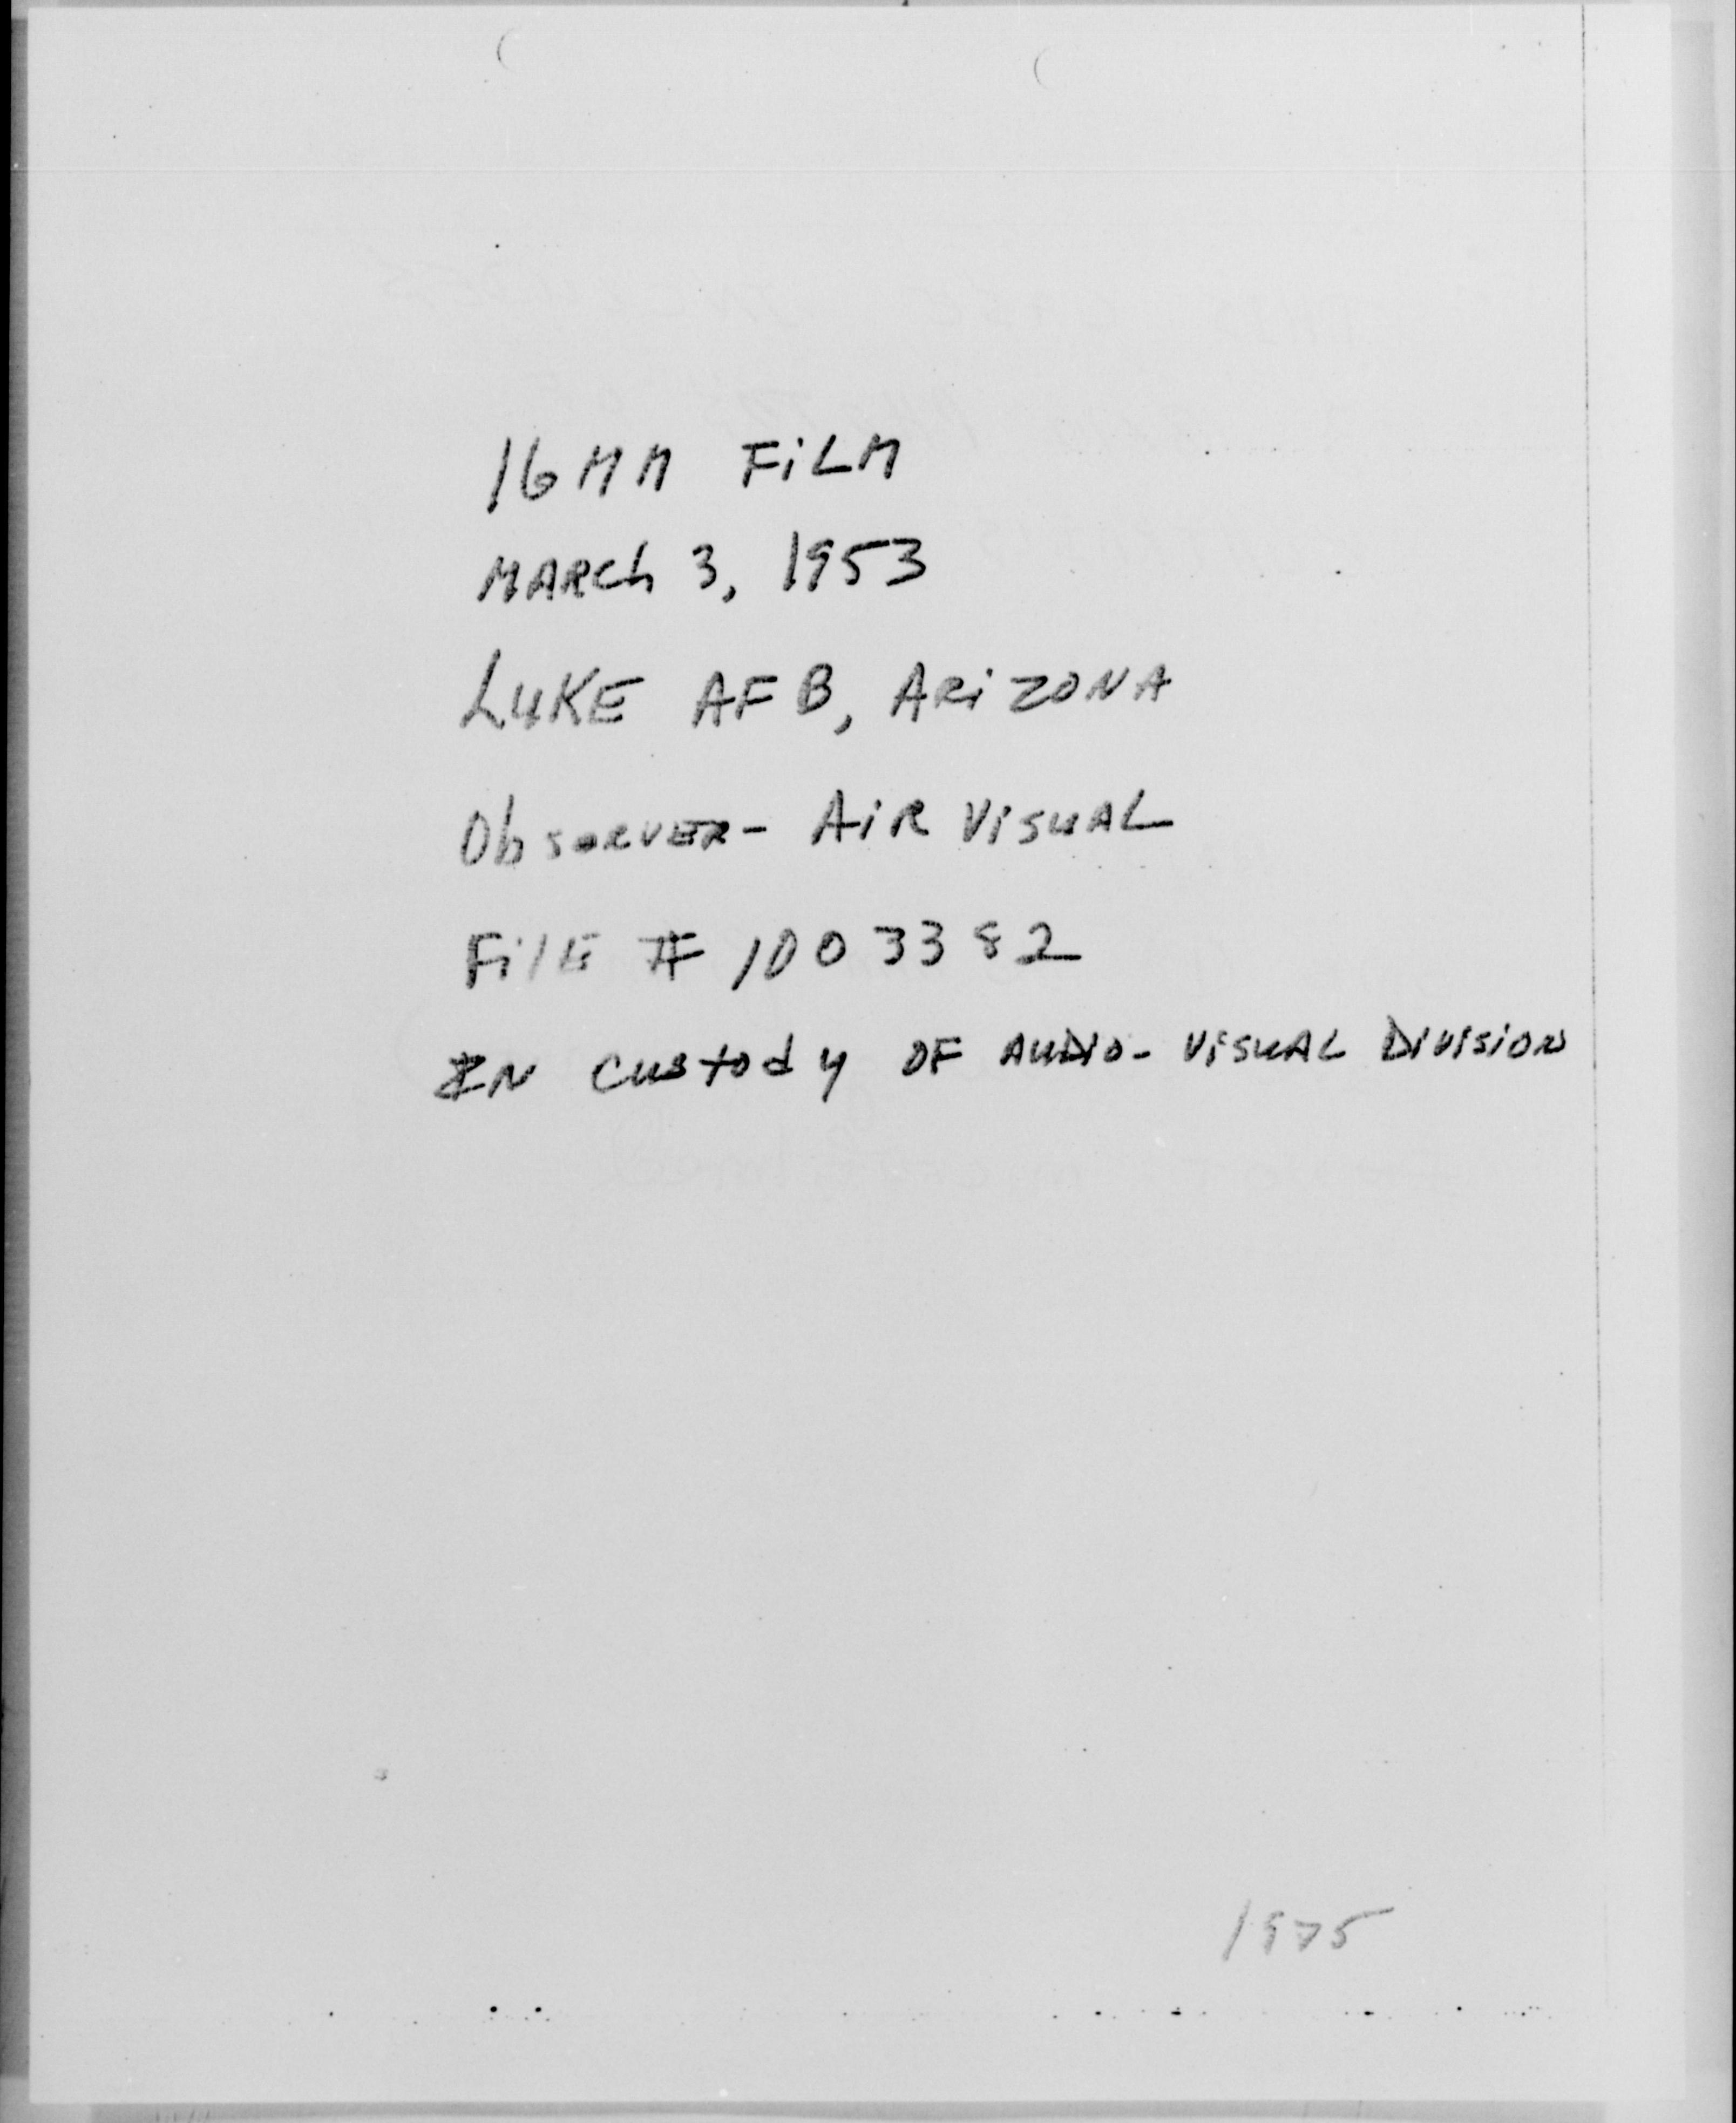 16MM FiLM
MARCh 3, 1953
LUKE AFB, ARiZONA
ObSERVER- AiR ViSUAL
FilE # 1003382
IN CustodY OF AUDIO-ViSUAL DiViSiON
1975